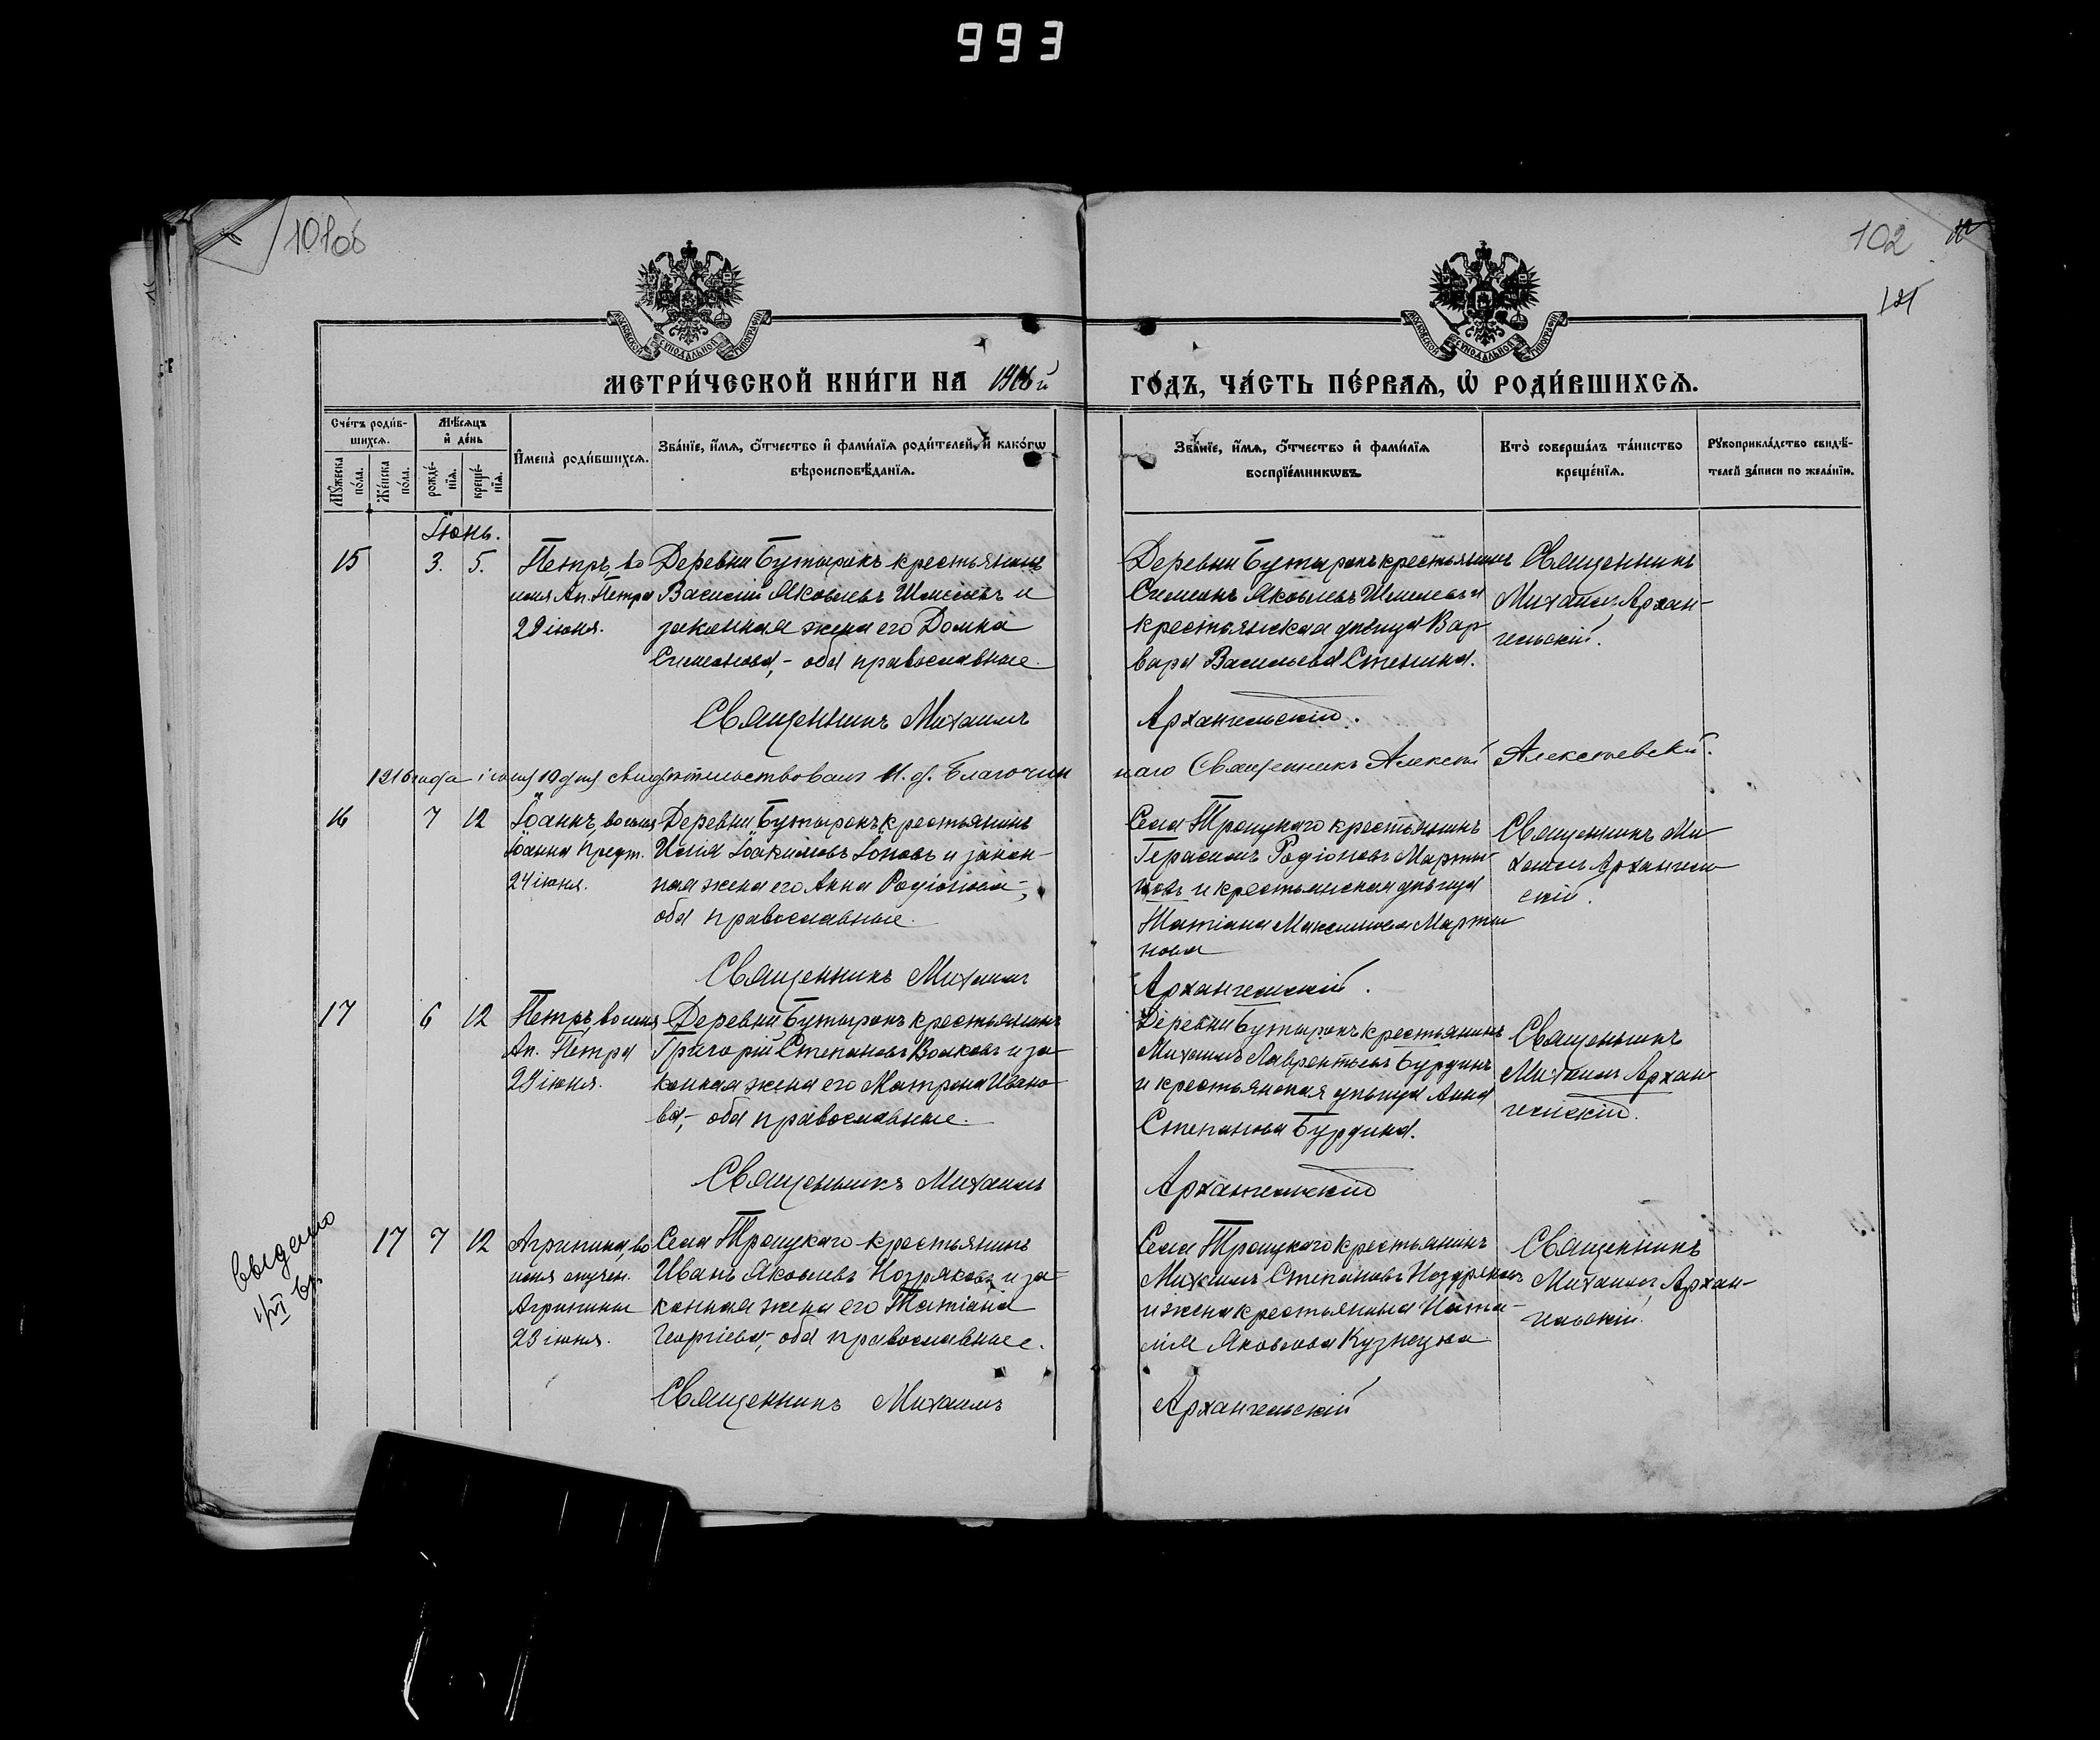 993
101об
102
МОСКОВСКОЙ СѴНОДАЛЬНОЙ ТИПОГРАФІИ
МОСКОВСКОЙ СѴНОДАЛЬНОЙ ТИПОГРАФІИ
МЕТРИ́ЧЕСКОЙ КНИ́ГИ НА 1916й ГО́ДЪ, ЧА́СТЬ ПЕ́РВАѦ, Ѡ҆ РОДИ́ВШИХСѦ.
Сче́тъ роди́вшихсѧ.
Мꙋ́жеска по́ла.
Же́нска по́ла.
Мѣ́сѧцъ и҆ де́нь
рожде́нїѧ.
креще́нїѧ.
И҆мена̀ роди́вшихсѧ.
Зва́нїе, и҆́мѧ, ѻ҆́тчество и҆ фами́лїѧ роди́телей, и҆ како́гѡ
вѣроисповѣ́данїѧ.
Зва́нїе, и҆́мѧ, ѻ҆́тчество и҆ фами́лїѧ
воспрїе́мникѡвъ.
Кто̀ соверша́лъ та́инство
креще́нїѧ.
Рꙋкоприкла́дство свидѣ́-
телей за́писи по жела́нїю.
Іюнь.
15 3. 5.
Петръ, во
имя Ап. Петра
29 іюня.
Деревни Бутырокъ крестьянинъ
Василій Яковлевъ Шмелевъ и
законная жена его Домна
Симеонова, - оба православные.
Деревни Бутырокъ крестьянинъ
Симеонъ Яковлевъ Шмелевъ и
крестьянская дѣвица Вар-
вара Васильева Стенина.
Священникъ
Михаилъ Архан-
гельскій.
Священникъ Михаилъ Архангельскій.
1916 года іюня 19 дня свидѣтельствовалъ И. д. Благочин наго Священникъ Алексій Алексѣевскій.
16 7 12
Іоаннъ, во имя
Іоанна Предт.
24 іюня.
Деревни Бутырокъ крестьянинъ
Илія Іоакимовъ Іоновъ и закон-
ная жена его Анна Родіонова,-
оба православные.
Села Троицкаго крестьянинъ
Герасимъ Родіоновъ Марты-
новъ и крестьянская дѣвица
Татіана Максимова Марты
нова
Священникъ Ми
хаилъ Архангель
скій.
Священникъ Михаилъ Архангельскій.
17 6 12
Петръ, во имя
Ап. Петра
29 іюня.
Деревни Бутырокъ крестьянинъ
Григорій Степановъ Волковъ и за-
конная жена его Матрона Ивано-
ва,- оба православные.
Деревни Бутырокъ крестьянинъ
Михаилъ Лаврентьевъ Бурдинъ
и крестьянская дѣвица Анна
Степанова Бурдина.
Священникъ
Михаилъ Архан-
гельскій.
Священникъ Михаилъ Архангельскій
17 7 12
Агрипина, во
имя мучен.
Агрипины
23 іюня.
Села Троицкаго крестьянинъ
Иванъ Яковлевъ Ноздряковъ и за-
конная жена его Татіана
Георгіева,- оба православные.
Села Троицкаго крестьянинъ
Михаилъ Степановъ Ноздряковъ
и жена крестьянина Ната-
лія Яковлева Кузнецова
Священникъ
Михаилъ Архан-
гельскій.
Священникъ Михаилъ Архангельскій